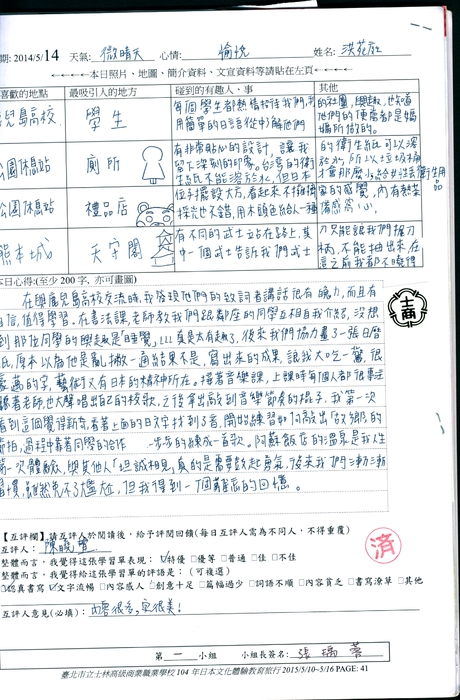 期: 2014/5/14 天氣: 微晴天 心情: 愉悅 姓名: 洪
本日照片、地圖、簡介資料、文宣資料等請貼在左頁
喜歡的地點 最吸引人的地方 碰到的有趣人、事 其他
兒島高校 學生 每個學生都熱情接待我們,利用簡單的日語從中了解他們的社團,興趣,也知道他們的便當都是媽媽所做的。
公園休憩站 廁所 有非常貼心的設計,讓我留下深刻的印象。台灣的衛生紙不能溶於水,但日本的衛生紙可以溶於水,所以垃圾桶才會那麼小給女性丟衛生用品
公園休憩站 禮品店
熊本城 天守閣 有不同的武士站在路上,其中一個武士告訴我們武士刀只能讓我們握刀柄,不能抽出來,在這之前我都不曉得
本日心得:(至少 200 字,亦可畫圖)
在與鹿兒島高校交流時,我發現他們的致詞者講話很有魄力,而且有
自信,值得學習。在書法課,老師教我們跟鄰座的同學互相自我介紹,沒想
到那位同學的興趣是睡覺,真是太有趣了,後來我們協力畫了一張日曆
紙,原本以為他是亂撇一通結果不是,寫出來的成果,讓我大吃一驚,很
豪邁的字,藝術又有日本的精神所在。接著音樂課,上課時每個人都很專注
聽著老師也大聲唱出自己的校歌,之後拿出敲到音樂節奏的橋子,我第一次
看到這個覺得新奇,看著上面的日文字找到了音,開始練習如何敲出「故鄉」的
節拍,過程中靠著同學的合作 一步步的練成一首歌。阿蘇飯店的溫泉是我人生
第一次體驗,與其他人「坦誠相見」真的是需要鼓起勇氣,後來我們漸漸
習慣,雖然免不了尷尬,但我得到一個難忘的回憶。
士商
【互評欄】請互評人於閱讀後,給予評閱回饋(每日互評人需為不同人,不得重覆)
互評人: 陳曉萱
整體而言,我覺得這張學習單表現: ☑特優 □優等 □普通 □佳 □不佳
整體而言,我覺得給這張學習單的評語是: (可複選)
認真書寫 ☑文字流暢 □內容感人 □創意十足 □篇幅過少 □詞語不順 □內容貧乏 □書寫潦草 □其他
互評人意見(必填): 內容很多,字很美!
済
第 一 小組 小組長簽名: 張瑀
臺北市立士林高級商業職業學校 104 年日本文化體驗教育旅行 2015/5/10~5/16 PAGE: 41